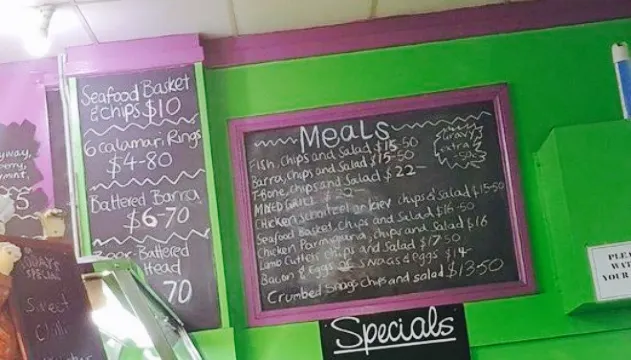 Seafood Basket
& chips $10
6 calamari Rings
$4-80
Battered Barra
$6-70
Beer-Battered
Head
70
Meals
Gravy
extra
-50¢
Fish, chips and Salad $15-50
Barra, chips and Salad $15-50
T-Bone, chips and Salad $22-
MIXED GRILL
Chicken Schnitzel or kiev chips & salad $15-50
Seafood Basket Chips and Salad $16-50
Chicken Parmigiana, Chips and Salad $16
Lamb Cutlets chips and Salad $17-50
Bacon & Eggs or Snags & eggs $14-
Crumbed Snags Chips and salad $13-50
Specials
TODAYS
SPECIAL
Sweet
Chilli
5
PLEASE
WAT
YOUR